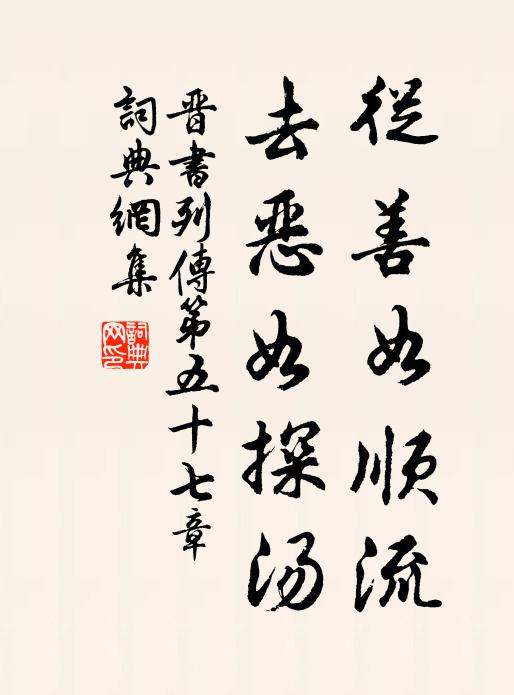 從善如順流
去惡如探湯
晋書列傳第五十七章
詞典網集
詞典網印